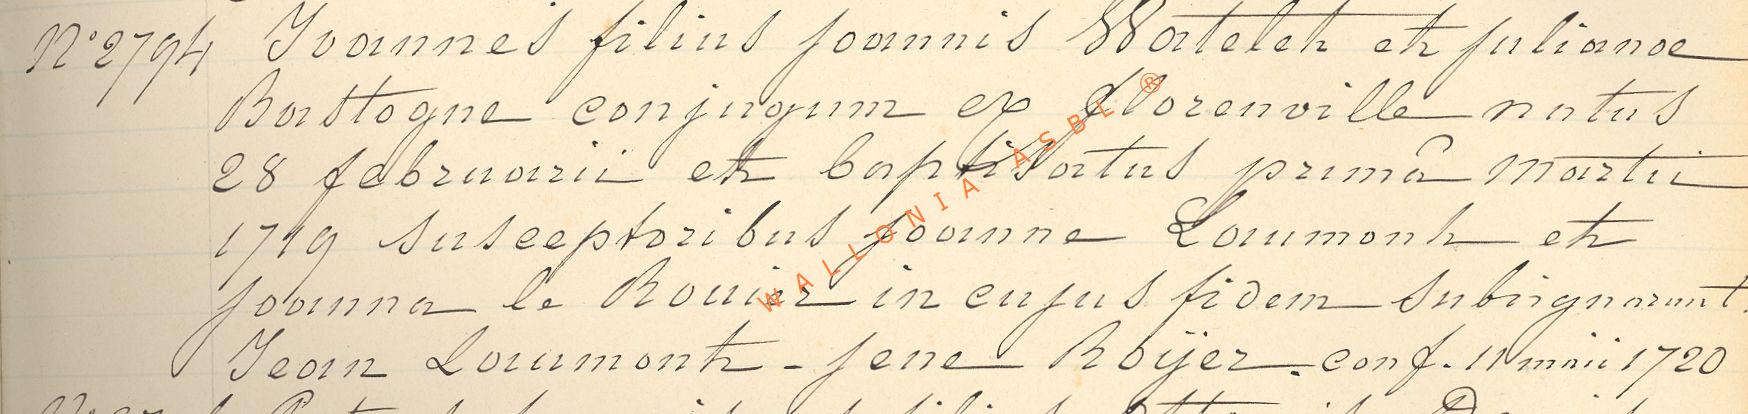 N° 2794 Joannes filius Joannis Watelet et julianae
Bastogne conjugum ex Florenville natus
28 februarii et baptisatus prima martii
1719 susceptoribus joanne Laumont et
joanna le Rouier in cujus fidem subsignarunt.
Jean Laumont - jene Roijer. conf. 11 maii 1720
WALLONIA ASBL ®